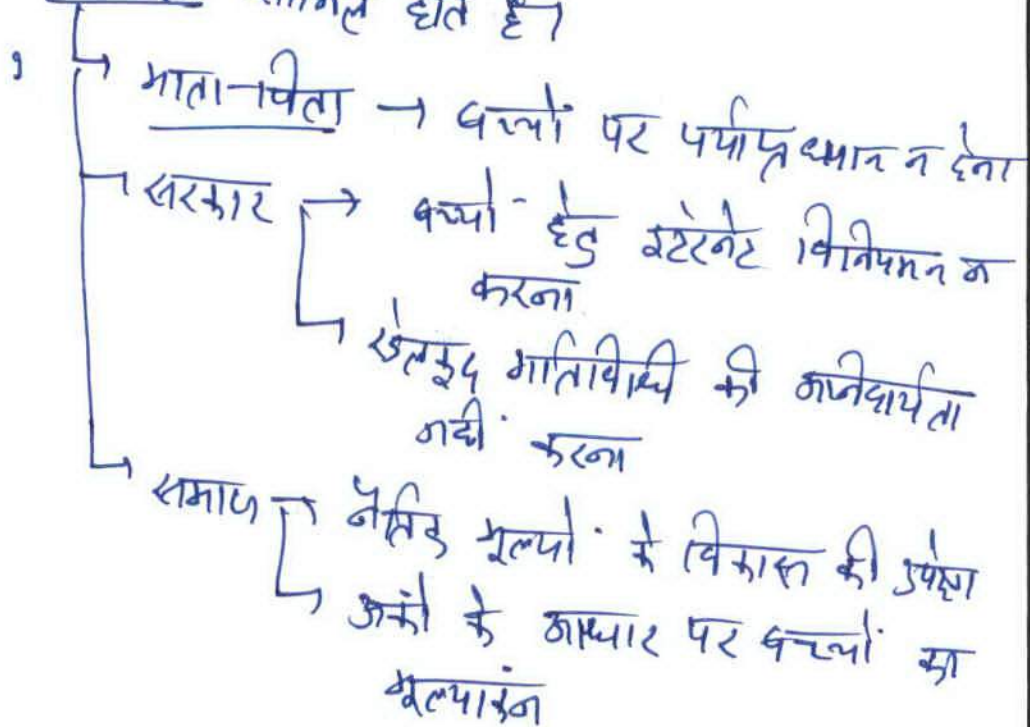 शामिल होते हैं।
→ माता-पिता → बच्चों पर पर्याप्त ध्यान न देना
सरकार → बच्चों हेतु इंटरनेट विनियमन न
करना
खेलकूद गतिविधि की अनिवार्यता
नहीं करना
समाज → नैतिक मूल्यों के विकास की उपेक्षा
→ अंकों के आधार पर बच्चों का
मूल्यांकन